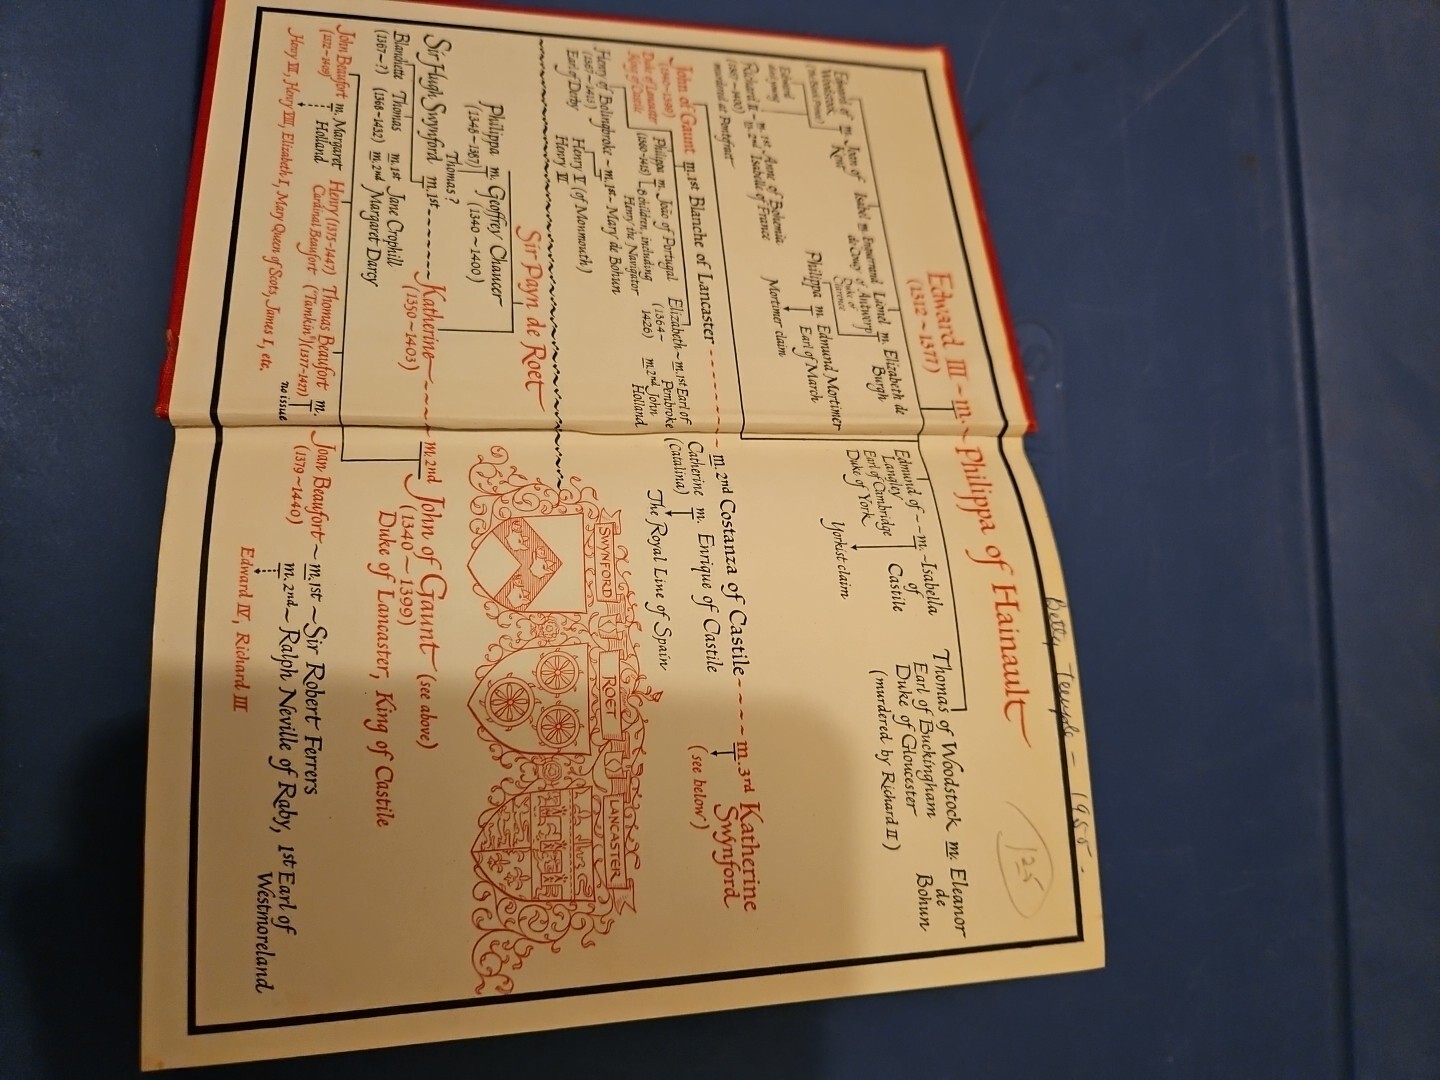 Betty Temple - 1955 -
125
Edward III ~ m. ~ Philippa of Hainault
(1312~1377)
Edward of m. Joan of
Woodstock Kent
(The Black Prince)
Isabel m. Enguerrand
de Coucy
Lionel m. Elizabeth de
of Antwerp Burgh
Duke of
Clarence
Edmund of ~ ~ m. ~ Isabella
Langley of
Earl of Cambridge Castile
Duke of York
Thomas of Woodstock m. Eleanor
Earl of Buckingham de
Duke of Gloucester Bohun
(murdered by Richard II)
Edward
died young
Richard II ~ m. 1st Anne of Bohemia
(1367~1400) m. 2nd Isabelle of France
murdered at Pontefract
Philippa m. Edmund Mortimer
Earl of March
Mortimer claim
Yorkist claim
John of Gaunt m. 1st Blanche of Lancaster
(1340~1399)
Duke of Lancaster
King of Castile
m. 2nd Costanza of Castile
m. 3rd Katherine
Swynford
(see below)
Philippa m. João of Portugal
(1360~1415) 8 children, including
Henry the Navigator
Elizabeth ~ m. 1st Earl of
(1364~ Pembroke
1426) m. 2nd John
Holland
Catherine m. Enrique of Castile
(Catalina)
The Royal Line of Spain
Henry of Bolingbroke ~ m. 1st ~ Mary de Bohun
(1367~1413)
Earl of Derby
Henry IV
Henry V (of Monmouth)
Sir Payn de Roet
Philippa m. Geoffrey Chaucer
(1348~1387) (1340~1400)
Thomas?
SWYNFORD
ROET
LANCASTER
Sir Hugh Swynford m. 1st ~ Katherine ~ m. 2nd John of Gaunt (see above)
(1350~1403) (1340~1399)
Duke of Lancaster, King of Castile
Blanchette Thomas m. 1st Jane Crophill
(1367~?) (1368~1432) m. 2nd Margaret Darcy
John Beaufort m. Margaret
Holland
Henry (1375~1447)
Cardinal Beaufort
Thomas Beaufort m.
("Tamkin") (1377~1427) no issue
Joan Beaufort ~ m. 1st ~ Sir Robert Ferrers
(1379~1440) m. 2nd ~ Ralph Neville of Raby, 1st Earl of
Westmoreland
Henry VII, Henry VIII, Elizabeth I, Mary Queen of Scots, James I, etc.
Edward IV, Richard III